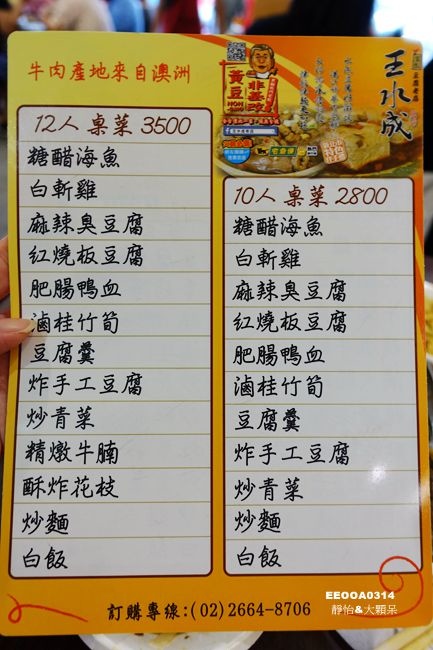 牛肉產地來自澳洲
12人 桌菜 3500
糖醋海魚
白斬雞
麻辣臭豆腐
紅燒板豆腐
肥腸鴨血
滷桂竹筍
豆腐羹
炸手工豆腐
炒青菜
精燉牛腩
酥炸花枝
炒麵
白飯
王水成
黃豆
非基改
NON
10人 桌菜 2800
糖醋海魚
白斬雞
麻辣臭豆腐
紅燒板豆腐
肥腸鴨血
滷桂竹筍
豆腐羹
炸手工豆腐
炒青菜
炒麵
白飯
訂購專線:(02)2664-8706
EEOOA0314
靜怡&大顆呆